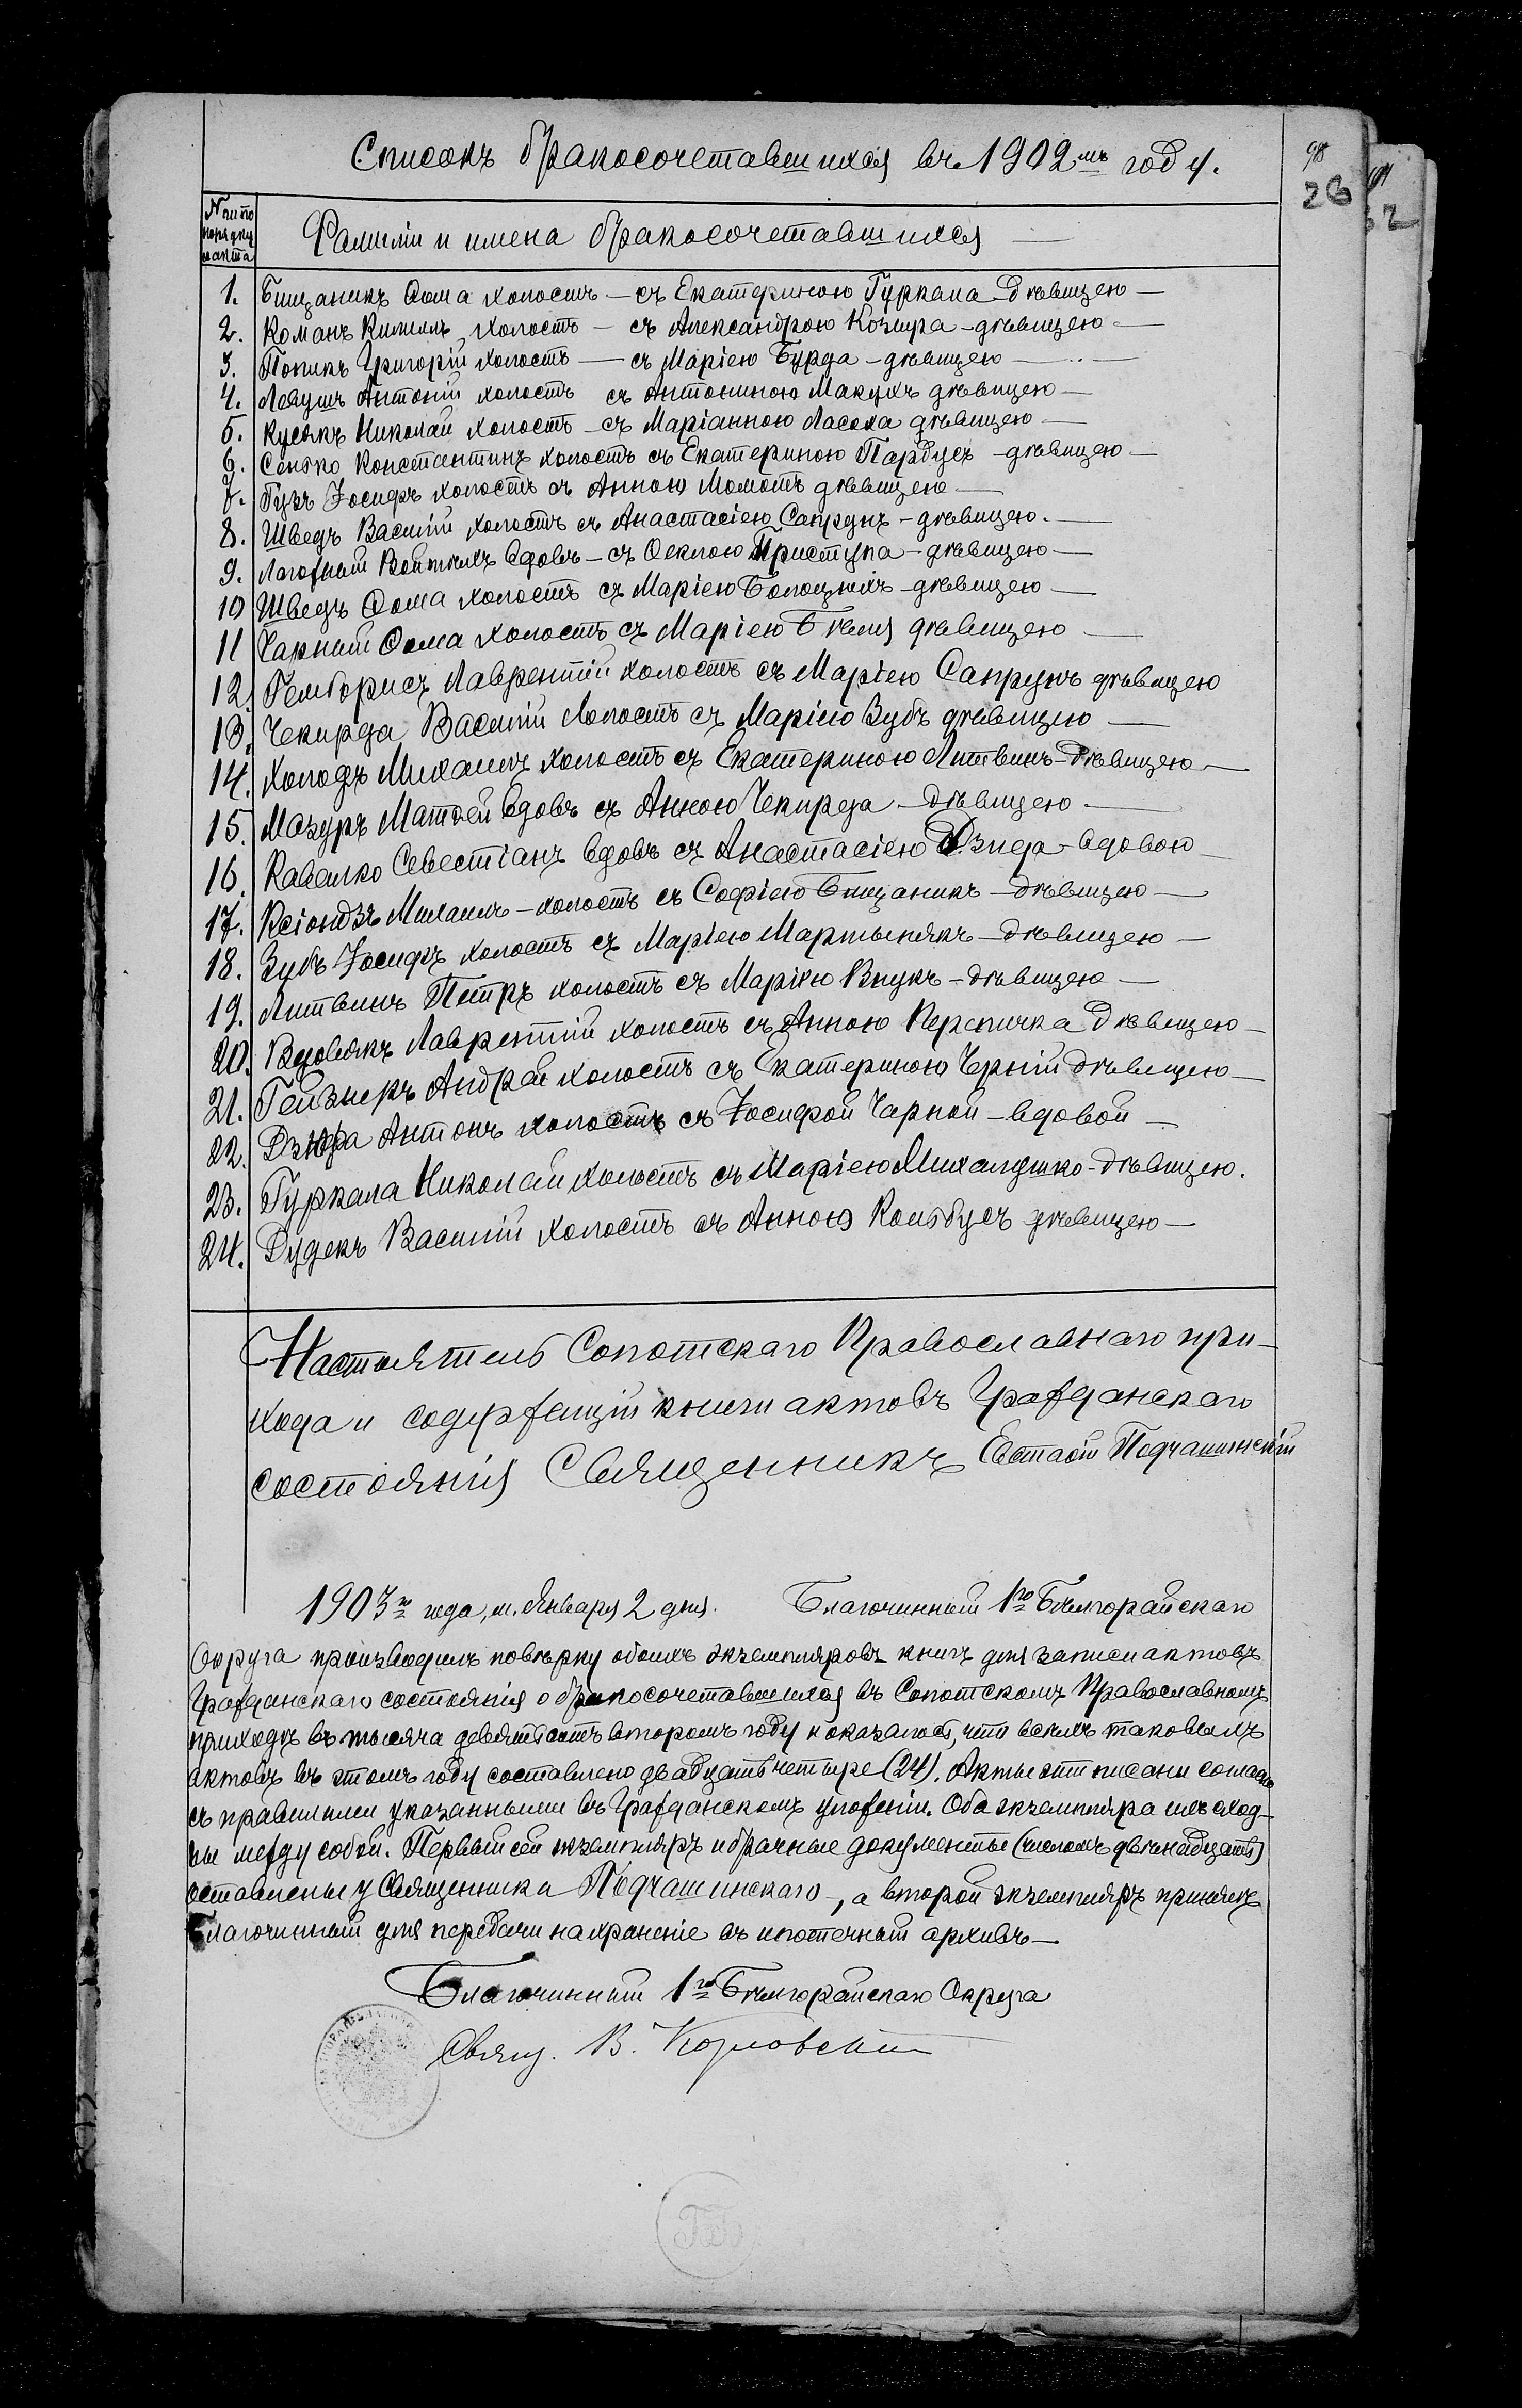 Списокъ бракосочетавшихся въ 1902мъ году.
98
26
№ по
порядку
акта
Фамиліи и имена бракосочетавшихся —
1. Бищаникъ Ѳома холостъ — съ Екатериною Гуркала — дѣвицею —
2. Команъ Кириллъ холостъ — съ Александрою Козыра — дѣвицею —
3. Попикъ Григорій холостъ — съ Маріею Бурда — дѣвицею —
4. Левушъ Антоній холостъ съ Антониною Макухъ дѣвицею —
5. Кусякъ Николай холостъ — съ Маріанною Ласоха дѣвицею —
6. Сенько Константинъ холостъ съ Екатериною Пардусъ — дѣвицею —
7. Гузъ Іосифъ холостъ съ Анною Момотъ дѣвицею —
8. Шведъ Василій холостъ съ Анастасіею Сапрунъ — дѣвицею. —
9. Лагожный Войтѣхъ вдовъ — съ Ѳеклою Приступа — дѣвицею —
10 Шведъ Ѳома холостъ съ Маріею Болоцкихъ — дѣвицею —
11 Чарный Ѳома холостъ съ Маріею Бѣля дѣвицею —
12. Гемборисъ Лаврентій холостъ съ Маріею Сапрунъ дѣвицею
13. Чекирда Василій холостъ съ Маріею Зубъ дѣвицею —
14. Холодъ Михаилъ холостъ съ Екатериною Литвинъ — дѣвицею —
15. Мазуръ Матѳей вдовъ съ Анною Чекирда — дѣвицею —
16. Кавалко Севестіанъ вдовъ съ Анастасіею Дзида — вдовою —
17. Ксіондзъ Михаилъ — холостъ съ Софіею Бищаникъ — дѣвицею —
18. Зубъ Іосифъ холостъ съ Маріею Мартынякъ — дѣвицею —
19. Литвинъ Петръ холостъ съ Маріею Внукъ — дѣвицею —
20. Вдовякъ Лаврентій холостъ съ Анною Перепичка дѣвицею —
21. Гейзнеръ Андрей холостъ съ Екатериною Черній дѣвицею —
22. Дзюра Антонъ холостъ съ Іосифой Чарной — вдовой —
23. Гуркала Николай холостъ съ Маріею Михалушко — дѣвицею.
24. Дудекъ Василій холостъ съ Анною Кольбусъ дѣвицею —
Настоятель Сопотскаго Православнаго при-
хода и содержащій книги актовъ Гражданскаго
состоянія Священникъ Евстаѳій Подчашинскій
1903го года, м. Января 2 дня. Благочинный 1го Бѣлгорайскаго
Округа производилъ повѣрку обоихъ экземпляровъ книгъ для записи актовъ
Гражданскаго состоянія о бракосочетавшихся въ Сопотскомъ Православномъ
приходѣ въ тысяча девятьсотъ второмъ году и оказалось, что всѣхъ таковыхъ
актовъ въ этомъ году составлено двадцать четыре (24). Акты эти писаны согласно
съ правилами указанными въ Гражданскомъ уложеніи. Оба экземпляра ихъ сход-
ны между собой. Первый сей экземпляръ и брачные документы (числомъ двѣнадцать)
оставлены у Священника Подчашинскаго —, а второй экземпляръ принялъ
Благочинный для передачи на храненіе въ ипотечный архивъ —
Благочинный 1го Бѣлгорайскаго Округа
Свящ. В.